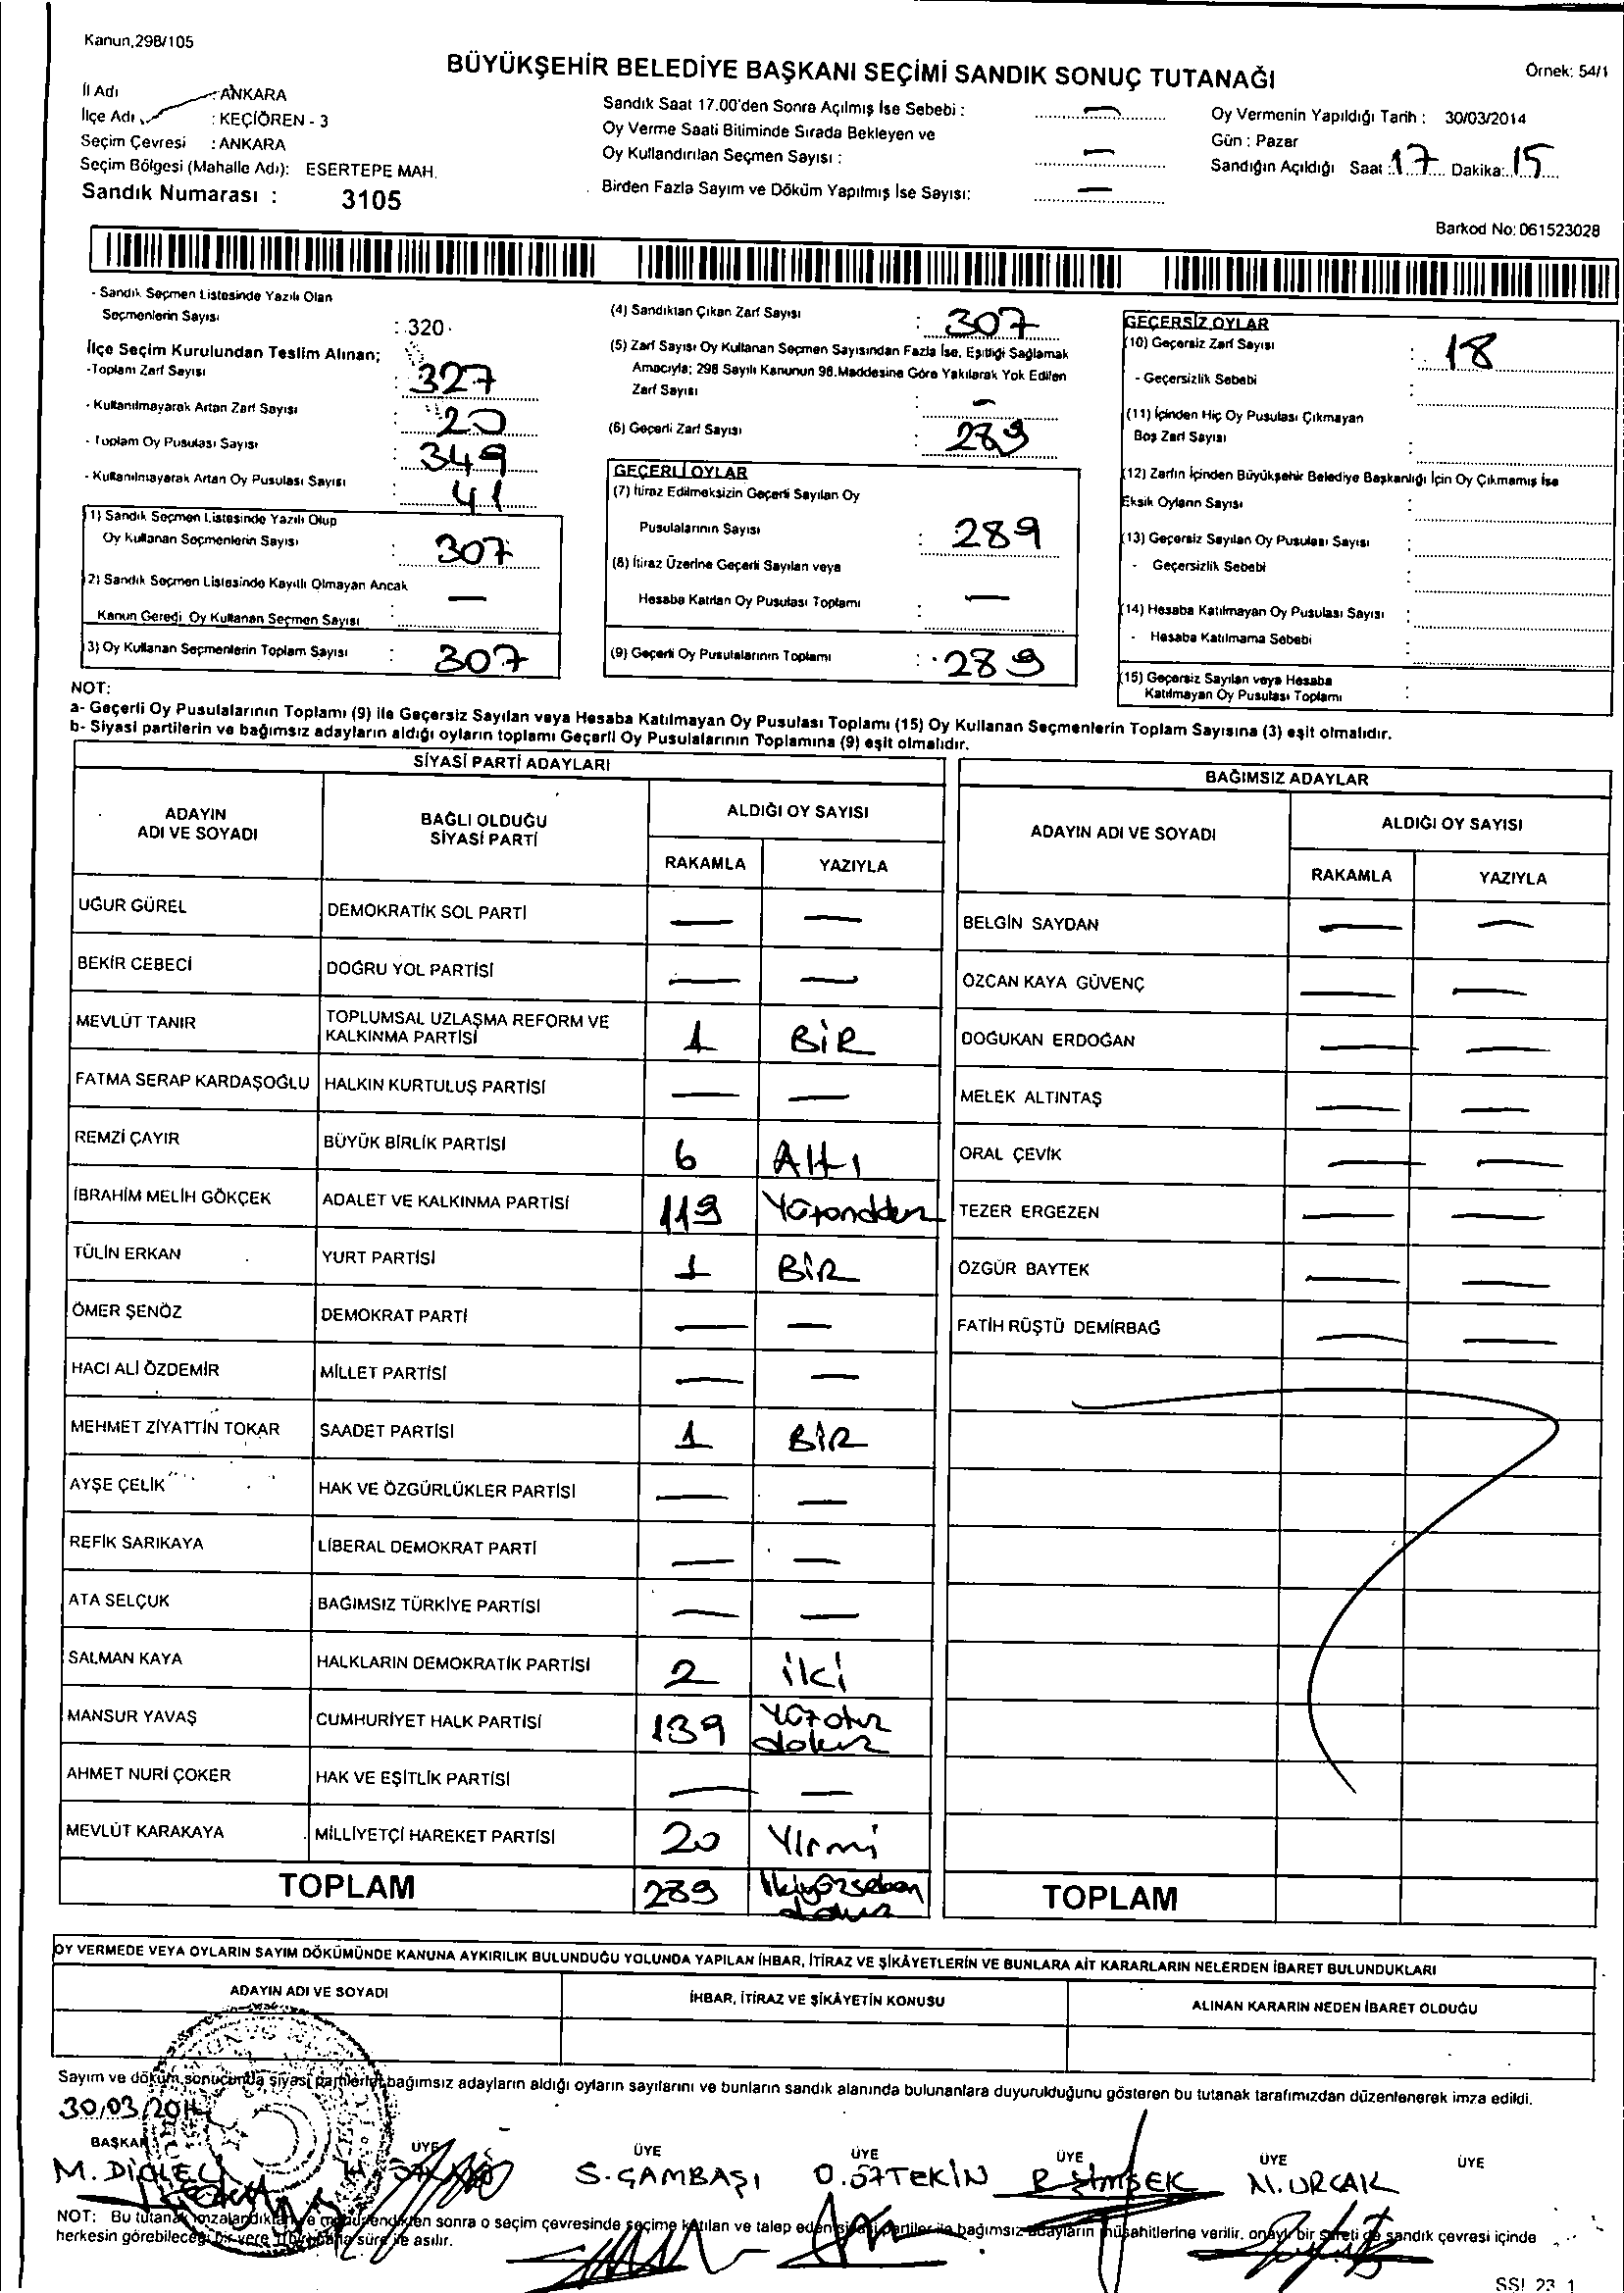 Kanun,298/105
BÜYÜKŞEHİR BELEDİYE BAŞKANI SEÇİMİ SANDIK SONUÇ TUTANAĞI
Örnek: 54/1
İl Adı : ANKARA
İlçe Adı : KEÇİÖREN - 3
Seçim Çevresi : ANKARA
Seçim Bölgesi (Mahalle Adı): ESERTEPE MAH.
Sandık Numarası : 3105
Sandık Saat 17.00'den Sonra Açılmış İse Sebebi : —
Oy Verme Saati Bitiminde Sırada Bekleyen ve
Oy Kullandırılan Seçmen Sayısı : —
Birden Fazla Sayım ve Döküm Yapılmış İse Sayısı: —
Oy Vermenin Yapıldığı Tarih : 30/03/2014
Gün : Pazar
Sandığın Açıldığı Saat : 17 Dakika: 15
Barkod No: 061523028
- Sandık Seçmen Listesinde Yazılı Olan
Seçmenlerin Sayısı : 320
İlçe Seçim Kurulundan Teslim Alınan;
-Toplam Zarf Sayısı : 327
- Kullanılmayarak Artan Zarf Sayısı : 20
- Toplam Oy Pusulası Sayısı : 349
- Kullanılmayarak Artan Oy Pusulası Sayısı : 41
(1) Sandık Seçmen Listesinde Yazılı Olup
Oy Kullanan Seçmenlerin Sayısı : 307
2) Sandık Seçmen Listesinde Kayıtlı Olmayan Ancak
Kanun Gereği Oy Kullanan Seçmen Sayısı : —
3) Oy Kullanan Seçmenlerin Toplam Sayısı : 307
(4) Sandıktan Çıkan Zarf Sayısı : 307
(5) Zarf Sayısı Oy Kullanan Seçmen Sayısından Fazla İse, Eşitliği Sağlamak
Amacıyla; 298 Sayılı Kanunun 98.Maddesine Göre Yakılarak Yok Edilen
Zarf Sayısı : -
(6) Geçerli Zarf Sayısı : 289
GEÇERLİ OYLAR
(7) İtiraz Edilmeksizin Geçerli Sayılan Oy
Pusulalarının Sayısı : 289
(8) İtiraz Üzerine Geçerli Sayılan veya
Hesaba Katılan Oy Pusulası Toplamı : —
(9) Geçerli Oy Pusulalarının Toplamı : 289
GEÇERSİZ OYLAR
(10) Geçersiz Zarf Sayısı : 18
- Geçersizlik Sebebi :
(11) İçinden Hiç Oy Pusulası Çıkmayan
Boş Zarf Sayısı :
(12) Zarfın İçinden Büyükşehir Belediye Başkanlığı İçin Oy Çıkmamış İse
Eksik Oyların Sayısı :
(13) Geçersiz Sayılan Oy Pusulası Sayısı :
- Geçersizlik Sebebi :
(14) Hesaba Katılmayan Oy Pusulası Sayısı :
- Hesaba Katılmama Sebebi :
(15) Geçersiz Sayılan veya Hesaba
Katılmayan Oy Pusulası Toplamı :
NOT:
a- Geçerli Oy Pusulalarının Toplamı (9) ile Geçersiz Sayılan veya Hesaba Katılmayan Oy Pusulası Toplamı (15) Oy Kullanan Seçmenlerin Toplam Sayısına (3) eşit olmalıdır.
b- Siyasi partilerin ve bağımsız adayların aldığı oyların toplamı Geçerli Oy Pusulalarının Toplamına (9) eşit olmalıdır.
SİYASİ PARTİ ADAYLARI
ADAYIN ADI VE SOYADI
BAĞLI OLDUĞU SİYASİ PARTİ
ALDIĞI OY SAYISI
RAKAMLA YAZIYLA
UĞUR GÜREL DEMOKRATİK SOL PARTİ — —
BEKİR CEBECİ DOĞRU YOL PARTİSİ — —
MEVLÜT TANIR TOPLUMSAL UZLAŞMA REFORM VE KALKINMA PARTİSİ 1 BİR
FATMA SERAP KARDAŞOĞLU HALKIN KURTULUŞ PARTİSİ — —
REMZİ ÇAYIR BÜYÜK BİRLİK PARTİSİ 6 Altı
İBRAHİM MELİH GÖKÇEK ADALET VE KALKINMA PARTİSİ 119
TÜLİN ERKAN YURT PARTİSİ 1 BİR
ÖMER ŞENÖZ DEMOKRAT PARTİ — —
HACI ALİ ÖZDEMİR MİLLET PARTİSİ — —
MEHMET ZİYATTİN TOKAR SAADET PARTİSİ 1 BİR
AYŞE ÇELİK HAK VE ÖZGÜRLÜKLER PARTİSİ — —
REFİK SARIKAYA LİBERAL DEMOKRAT PARTİ — —
ATA SELÇUK BAĞIMSIZ TÜRKİYE PARTİSİ — —
SALMAN KAYA HALKLARIN DEMOKRATİK PARTİSİ 2 iki
MANSUR YAVAŞ CUMHURİYET HALK PARTİSİ 139 Yüzotuz dokuz
AHMET NURİ ÇOKER HAK VE EŞİTLİK PARTİSİ — —
MEVLÜT KARAKAYA MİLLİYETÇİ HAREKET PARTİSİ 20 Yirmi
TOPLAM 289 İkiyüzseksen dokuz
BAĞIMSIZ ADAYLAR
ADAYIN ADI VE SOYADI
ALDIĞI OY SAYISI
RAKAMLA YAZIYLA
BELGİN SAYDAN — —
ÖZCAN KAYA GÜVENÇ — —
DOĞUKAN ERDOĞAN — —
MELEK ALTINTAŞ — —
ORAL ÇEVİK — —
TEZER ERGEZEN — —
ÖZGÜR BAYTEK — —
FATİH RÜŞTÜ DEMİRBAĞ — —
TOPLAM
OY VERMEDE VEYA OYLARIN SAYIM DÖKÜMÜNDE KANUNA AYKIRILIK BULUNDUĞU YOLUNDA YAPILAN İHBAR, İTİRAZ VE ŞİKÂYETLERİN VE BUNLARA AİT KARARLARIN NELERDEN İBARET BULUNDUKLARI
ADAYIN ADI VE SOYADI İHBAR, İTİRAZ VE ŞİKÂYETİN KONUSU ALINAN KARARIN NEDEN İBARET OLDUĞU
Sayım ve döküm sonucunda siyasi partilerle bağımsız adayların aldığı oyların sayılarını ve bunların sandık alanında bulunanlara duyurulduğunu gösteren bu tutanak tarafımızdan düzenlenerek imza edildi.
30/03/2014
BAŞKAN ÜYE ÜYE ÜYE ÜYE ÜYE ÜYE
S. ÇAMBAŞI O. ÖZTEKİN R. ŞİMŞEK N. URÇAK
NOT: Bu tutanak imzalandıktan ve mühürlendikten sonra o seçim çevresinde seçime katılan ve talep eden siyasi partiler ile bağımsız adayların müşahitlerine verilir, onaylı bir sureti de sandık çevresi içinde
herkesin görebileceği bir yere bir hafta süre ile asılır.
SSI 23 1